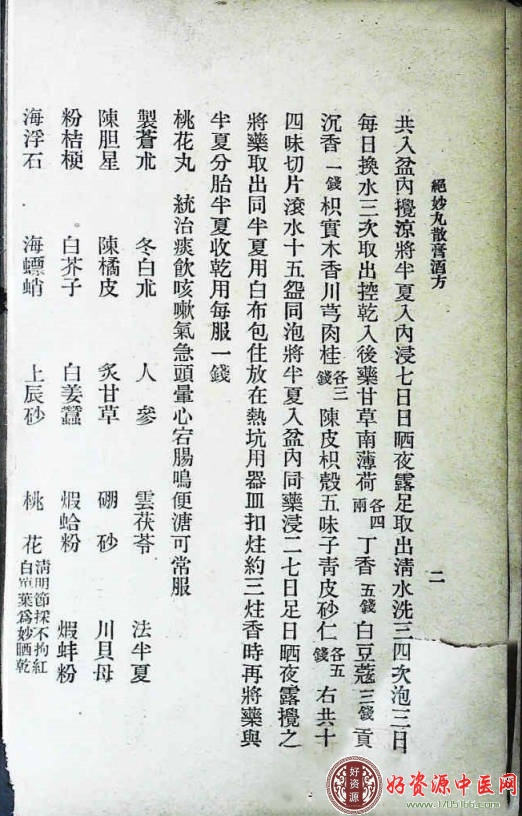 絕妙丸散膏酒方
二
共入盆內攪涼將半夏入內浸七日日晒夜露足取出清水洗三四次泡三日
每日換水三次取出控乾入後藥甘草南薄荷各四兩丁香五錢白豆蔻三錢貢
沉香一錢枳實木香川芎肉桂各三錢陳皮枳殼五味子青皮砂仁各五錢右共十
四味切片滾水十五盌同泡將半夏入盆內同藥浸二七日足日晒夜露攪之
將藥取出同半夏用白布包住放在熱坑用器皿扣炷約三炷香時再將藥與
半夏分胎半夏收乾用每服一錢
桃花丸 統治痰飲咳嗽氣急頭暈心宕腸鳴便溏可常服
製蒼朮 冬白朮 人參 雲茯苓 法半夏
陳胆星 陳橘皮 炙甘草 硼砂 川貝母
粉桔梗 白芥子 白姜蠶 煆蛤粉 煆蚌粉
海浮石 海螵蛸 上辰砂 桃花清明節採不拘紅白單葉爲妙晒乾
好资源
中医
好资源中医网